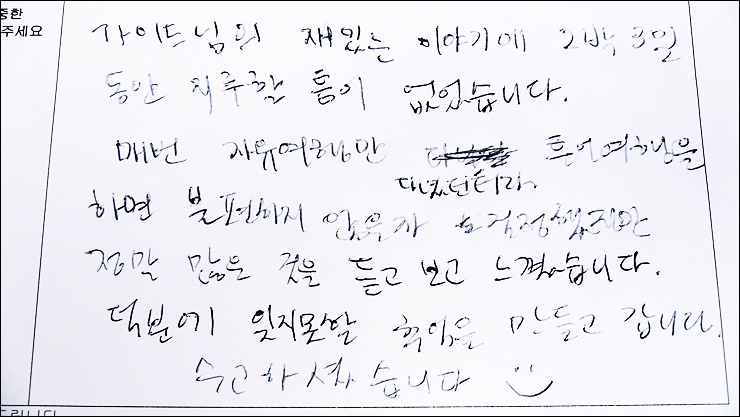 중한
주세요
가이드님의 재밌는 이야기에 2박 3일
동안 지루할 틈이 없었습니다.
매번 자유여행만 다녔던터라 투어여행을
하면 불편하지 않을까 걱정했지만
정말 많은 것을 듣고 보고 느꼈습니다.
덕분에 잊지못할 추억을 만들고 갑니다.
수고하셨습니다
드립니다